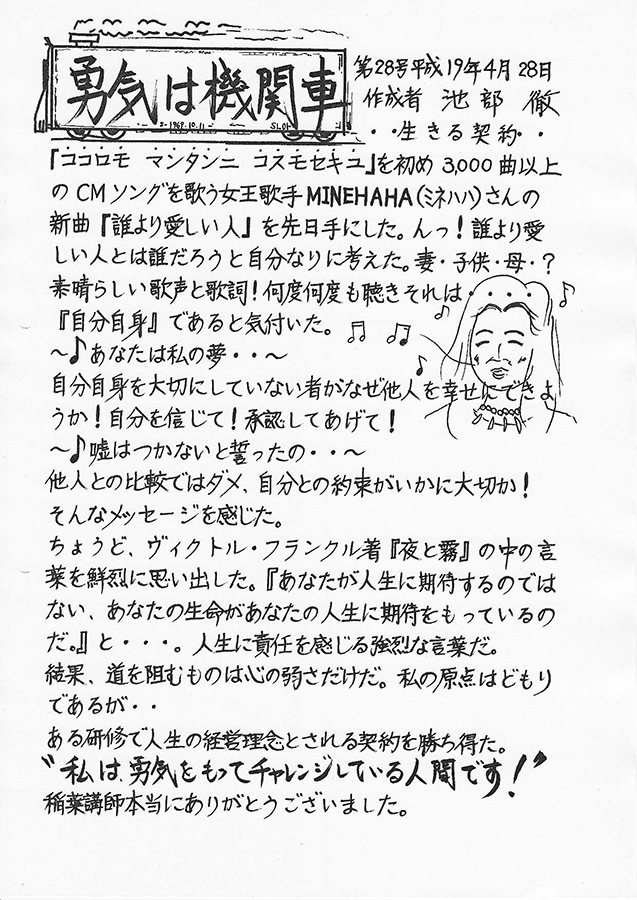 勇気は機関車
-1968.10.11-
SL01
第28号平成19年4月28日
作成者 池部 徹
・・生きる契約・・
『ココロモ マンタンニ コスモセキユ』を初め3,000曲以上
のCMソングを歌う女王歌手MINEHAHA(ミネハハ)さんの
新曲『誰より愛しい人』を先日手にした。んっ!誰より愛
しい人とは誰だろうと自分なりに考えた。妻・子供・母・?
素晴らしい歌声と歌詞!何度何度も聴きそれは・・・・
『自分自身』であると気付いた。
~♪あなたは私の夢・・~
自分自身を大切にしていない者がなぜ他人を幸せにできよ
うか!自分を信じて!承認してあげて!
~♪嘘はつかないと誓ったの・・~
他人との比較ではダメ、自分との約束がいかに大切か!
そんなメッセージを感じた。
ちょうど、ヴィクトル・フランクル著『夜と霧』の中の言
葉を鮮烈に思い出した。『あなたが人生に期待するのでは
ない、あなたの生命があなたの人生に期待をもっているの
だ。』と・・・。人生に責任を感じる強烈な言葉だ。
結果、道を阻むものは心の弱さだけだ。私の原点はどもり
であるが・・
ある研修で人生の経営理念とされる契約を勝ち得た。
"私は勇気をもってチャレンジしている人間です!"
稲葉講師本当にありがとうございました。